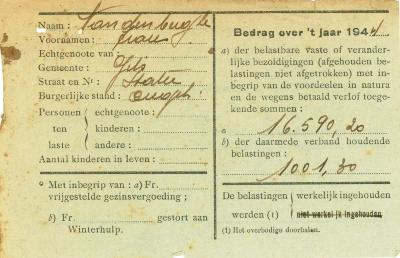 Naam : Vandenbuegh
Voornamen :
Echtgenoote van :
Gemeente :
Straat en Nr : Statie
Burgerlijke stand :
Personen { echtgenoote :
ten { kinderen :
laste { andere :
Aantal kinderen in leven :
• Met inbegrip van : a) Fr.
vrijgestelde gezinsvergoeding ;
b) Fr. gestort aan
Winterhulp.
Bedrag over 't jaar 1944
a) de belastbare vaste of verander-
lijke bezoldigingen (afgehouden be-
lastingen niet afgetrokken) met in-
begrip van de voordeelen in natura
en de wegens betaald verlof toege-
kende sommen :
16.590,20
b) de daarmede verband houdende
belastingen :
1001,30
De belastingen { werkelijk ingehouden
werden (1) { niet werkelijk ingehouden.
(1) Het overbodige doorhalen.